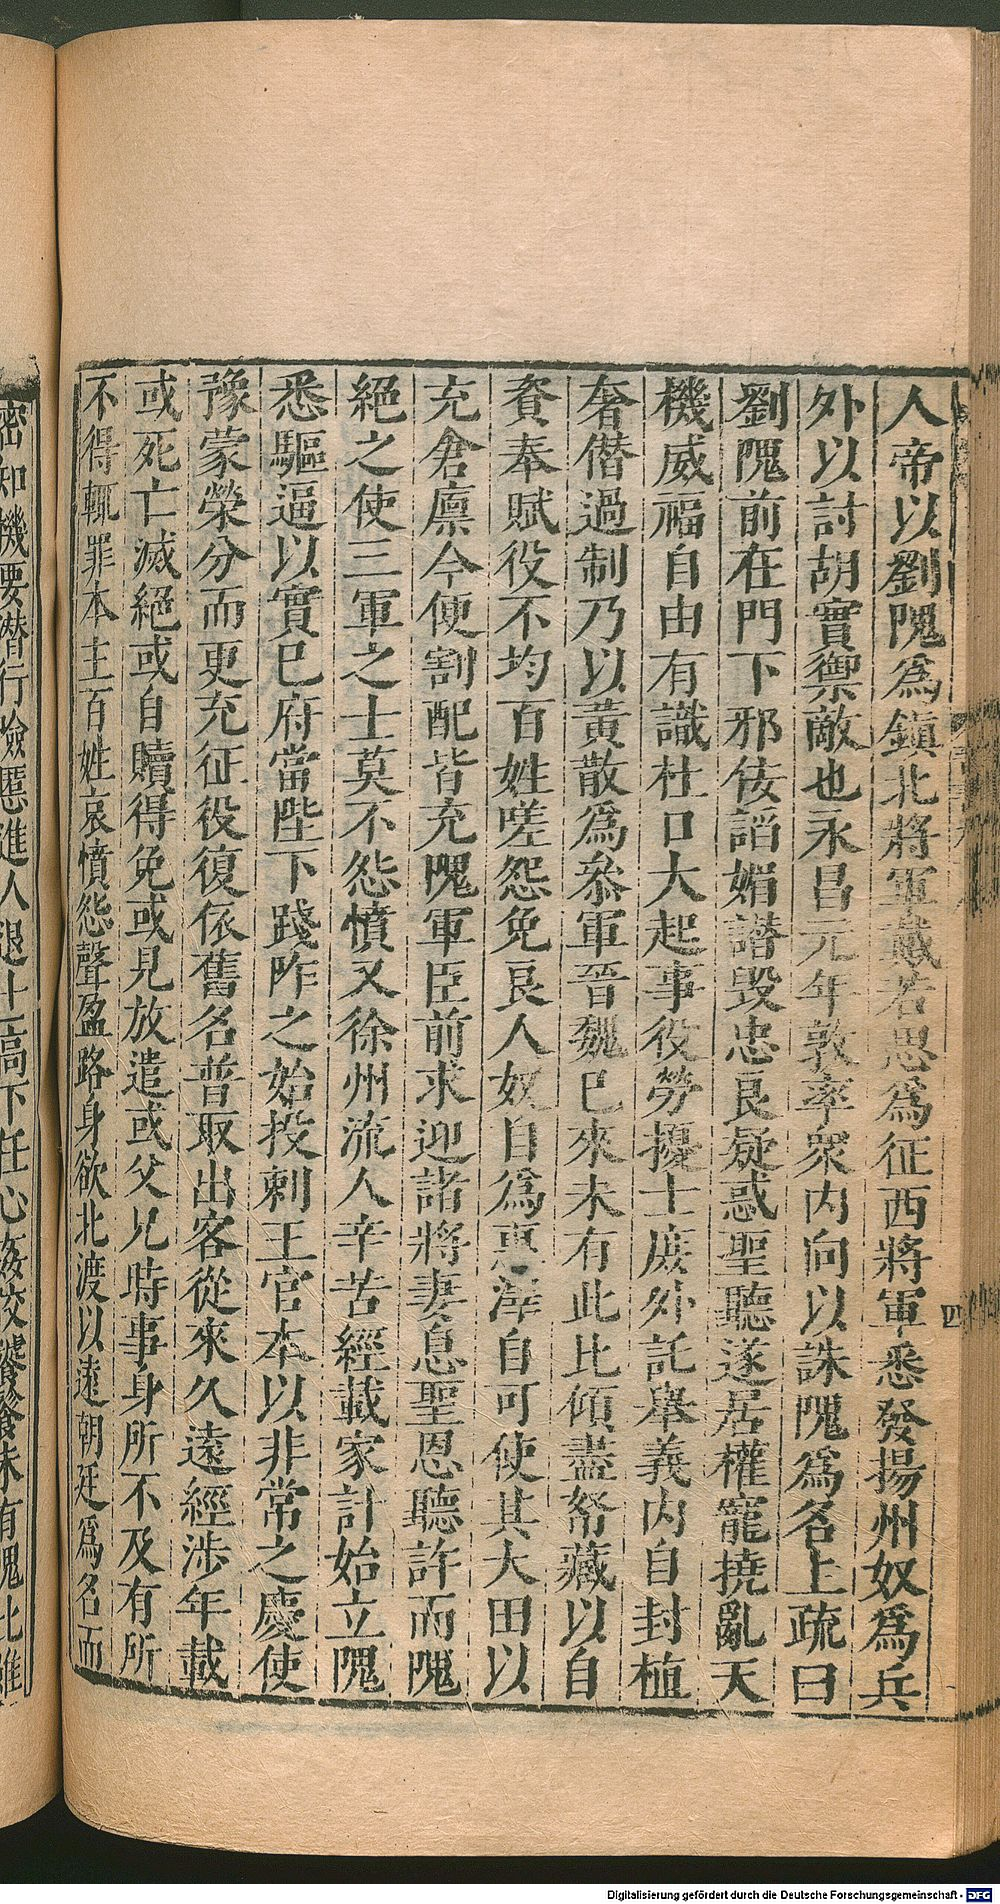 人帝以劉隗爲鎮北將軍戴若思爲征西將軍悉發揚州奴爲兵
外以討胡實禦敵也永昌元年敦率衆内向以誅隗爲名上疏曰
劉隗前在門下邪佞諂媚譖毀忠良疑惑聖聽遂居權寵撓亂天
機威福自由有識杜口大起事役勞擾士庶外託舉義内自封植
奢僭過制乃以黄散爲叅軍晉魏已來未有此比傾盡帑藏以自
資奉賦役不均百姓嗟怨免良人奴自爲惠澤自可使其大田以
充倉廪今便割配皆充隗軍臣前求迎諸將妻息聖恩聽許而隗
絕之使三軍之士莫不怨憤又徐州流人辛苦經載家計始立隗
悉驅逼以實已府當陛下踐阼之始投刺王官本以非常之慶使
豫蒙榮分而更充征役復依舊名普取出客從來久遠經涉年載
或死亡滅絕或自贖得免或見放遣或父兄時事身所不及有所
不得輒罪本主百姓哀憤怨聲盈路身欲北渡以遠朝廷爲名而
密知機要潛行險慝進人退士高下任心姦狡饕餮未有隗比雖
四
Digitalisierung gefördert durch die Deutsche Forschungsgemeinschaft - DFG